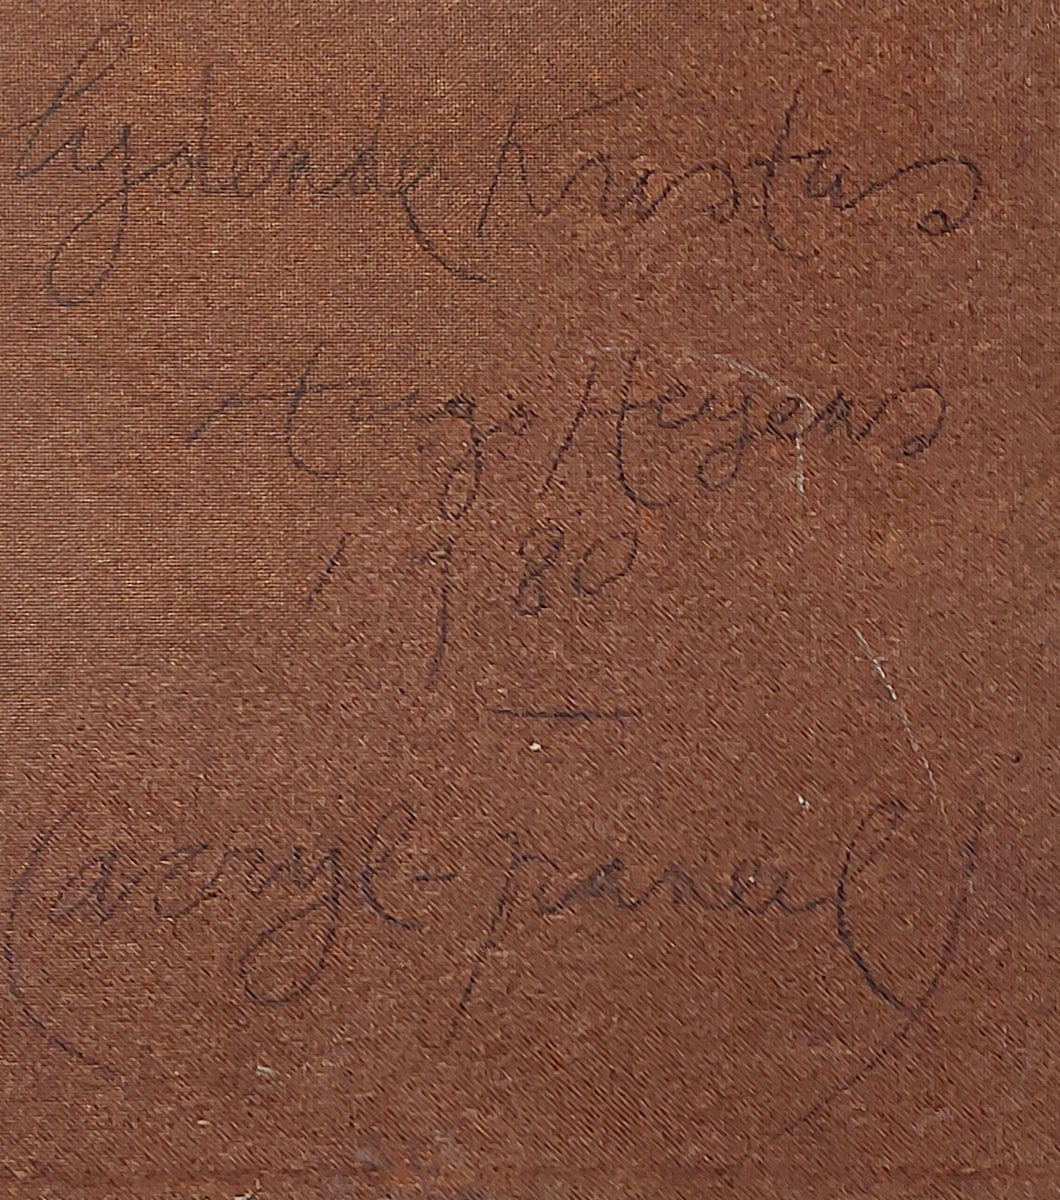 lijdende Kristus
Hugo Heyens
1980
(acryl-paneel)